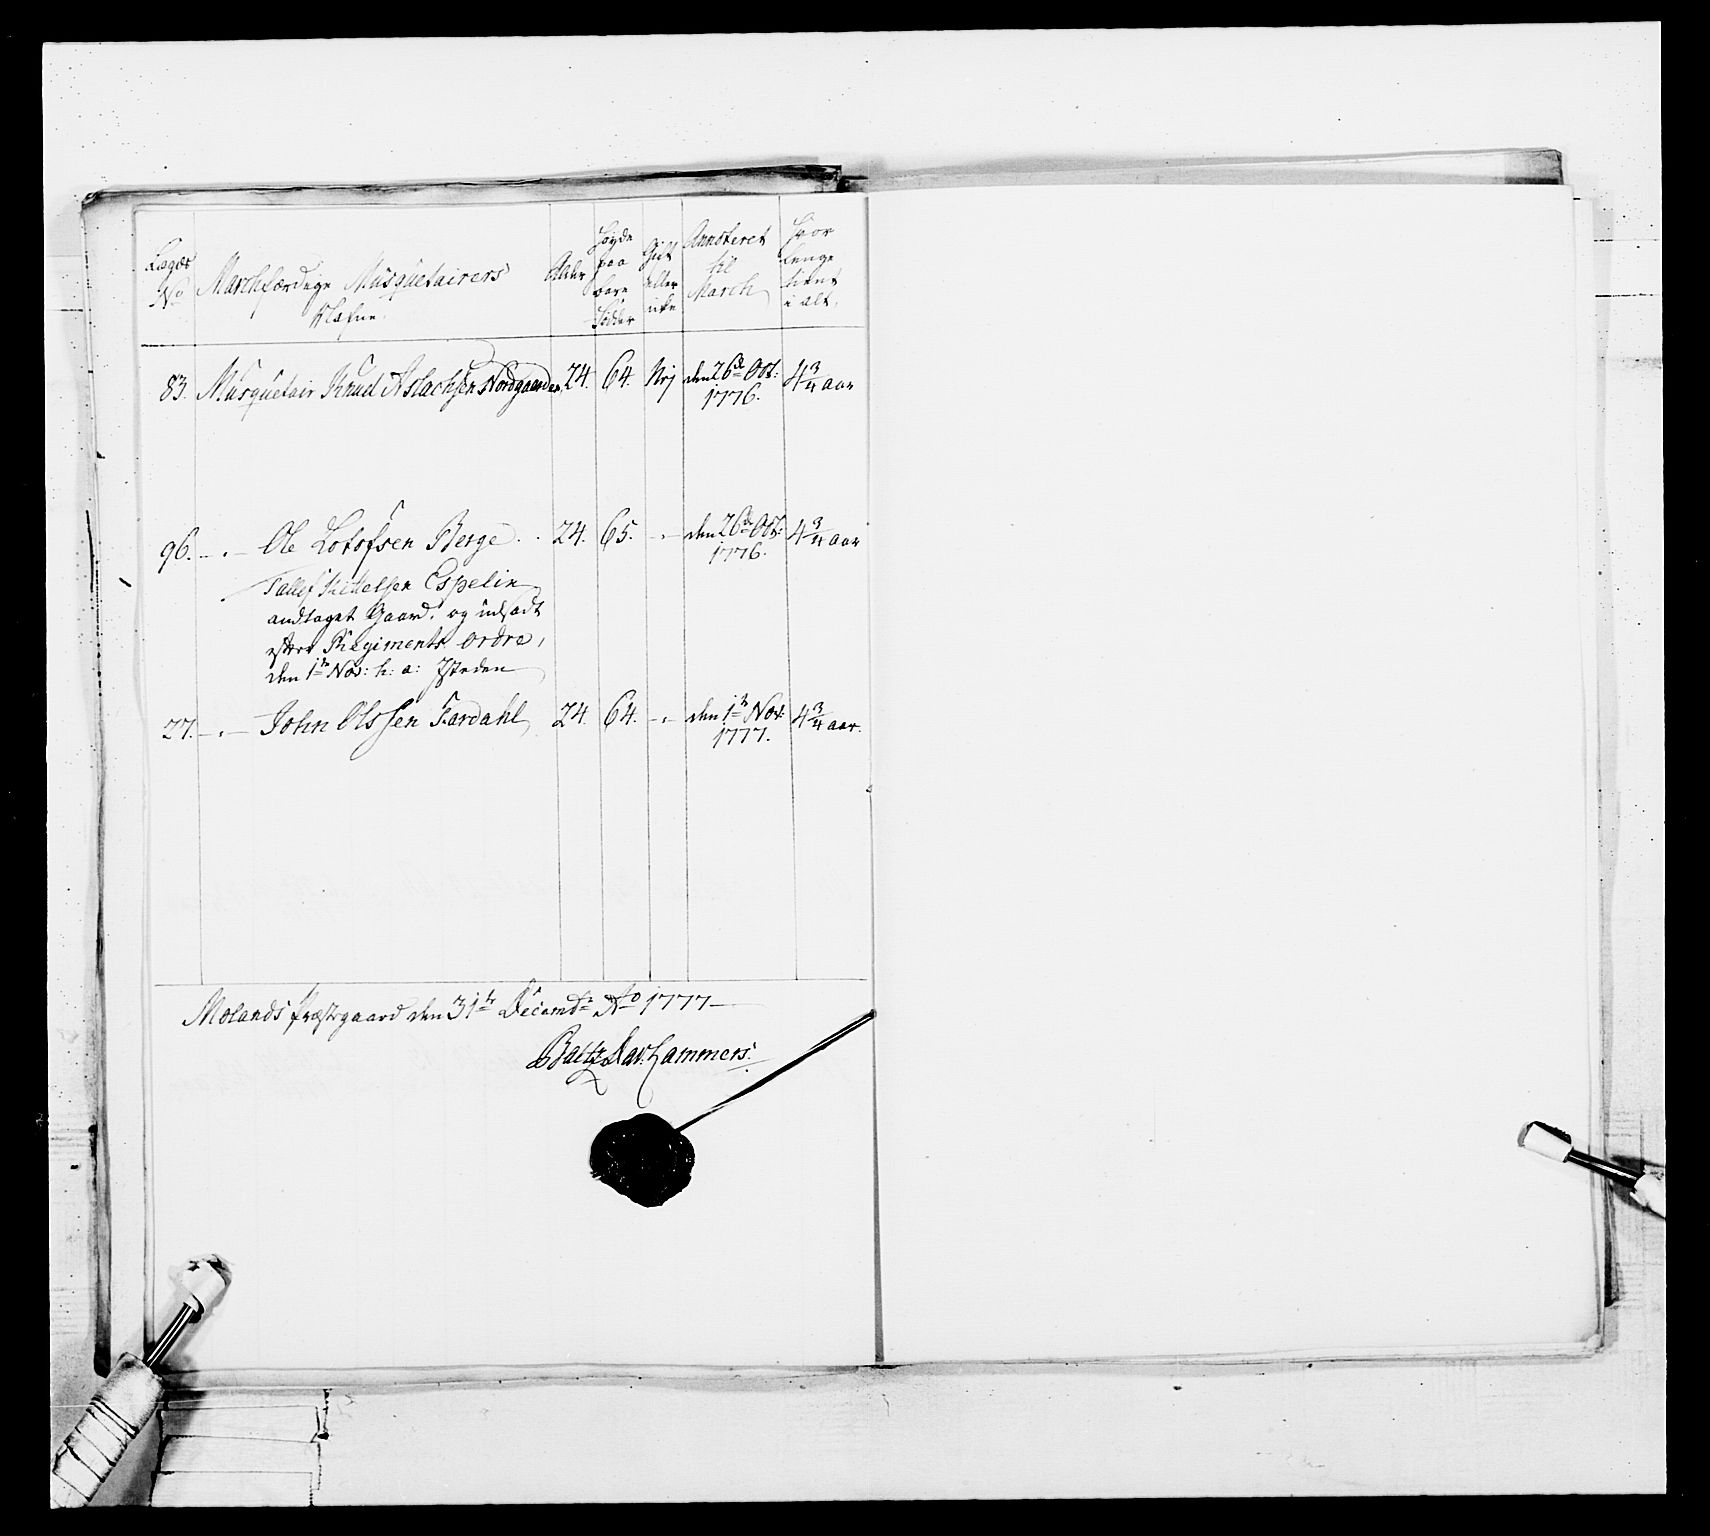 Lægds No | Marchfærdige Musquetairers Nafne. | Alder | Høyde paa bare Fødder | Gift eller ikke | Annoteret til March | Hvor lenge tient i alt.
83. Musquetair Knud Aslachsen Nordgaarden 24. 64. Nej den 26de Oct: 1776. 4 3/4 aar
96. — . — Ole Lofofsen Berge . . 24. 65. - . - den 26de Oct: 1776. 4 3/4 aar
Tallef Kittelsen Espelin
andtaget Gaard, og udsadt
efter Regiments ordre,
den 1te Nov: h: a: Isteden
27. — . — John Olssen Tardahl 24. 64. - . - den 1te Nov: 1777. 4 3/4 aar.
Molands Præstegaard den 31te Decembr Ao 1777
Baltz Dav: Lammers.